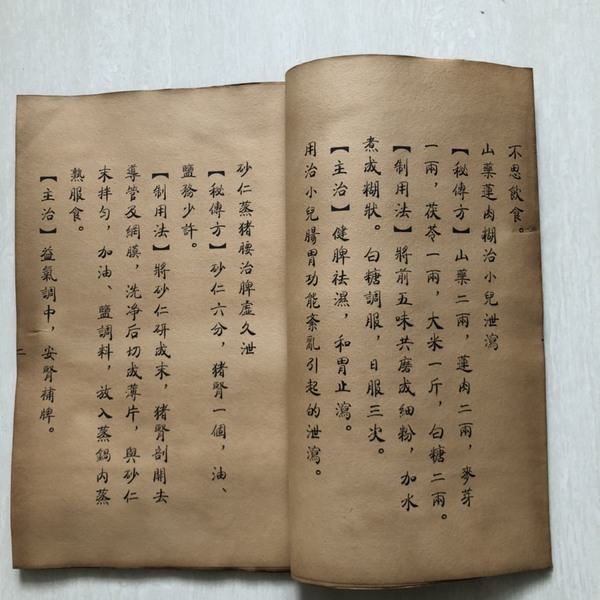 不思飲食。
山藥蓮肉糊治小兒泄瀉
【秘傳方】山藥二兩，蓮肉二兩，麥芽
一兩，茯苓一兩，大米一斤，白糖二兩。
【制用法】將前五味共磨成細粉，加水
煮成糊狀。白糖調服，日服三次。
【主治】健脾祛濕，和胃止瀉。
用治小兒腸胃功能紊亂引起的泄瀉。
砂仁蒸猪腰治脾虛久泄
【秘傳方】砂仁六分，猪腎一個，油、
鹽務少許。
【制用法】將砂仁研成末，猪腎剖開去
導管及網膜，洗净后切成薄片，與砂仁
末拌勻，加油、鹽調料，放入蒸鍋内蒸
熟服食。
【主治】益氣調中，安腎補脾。
二